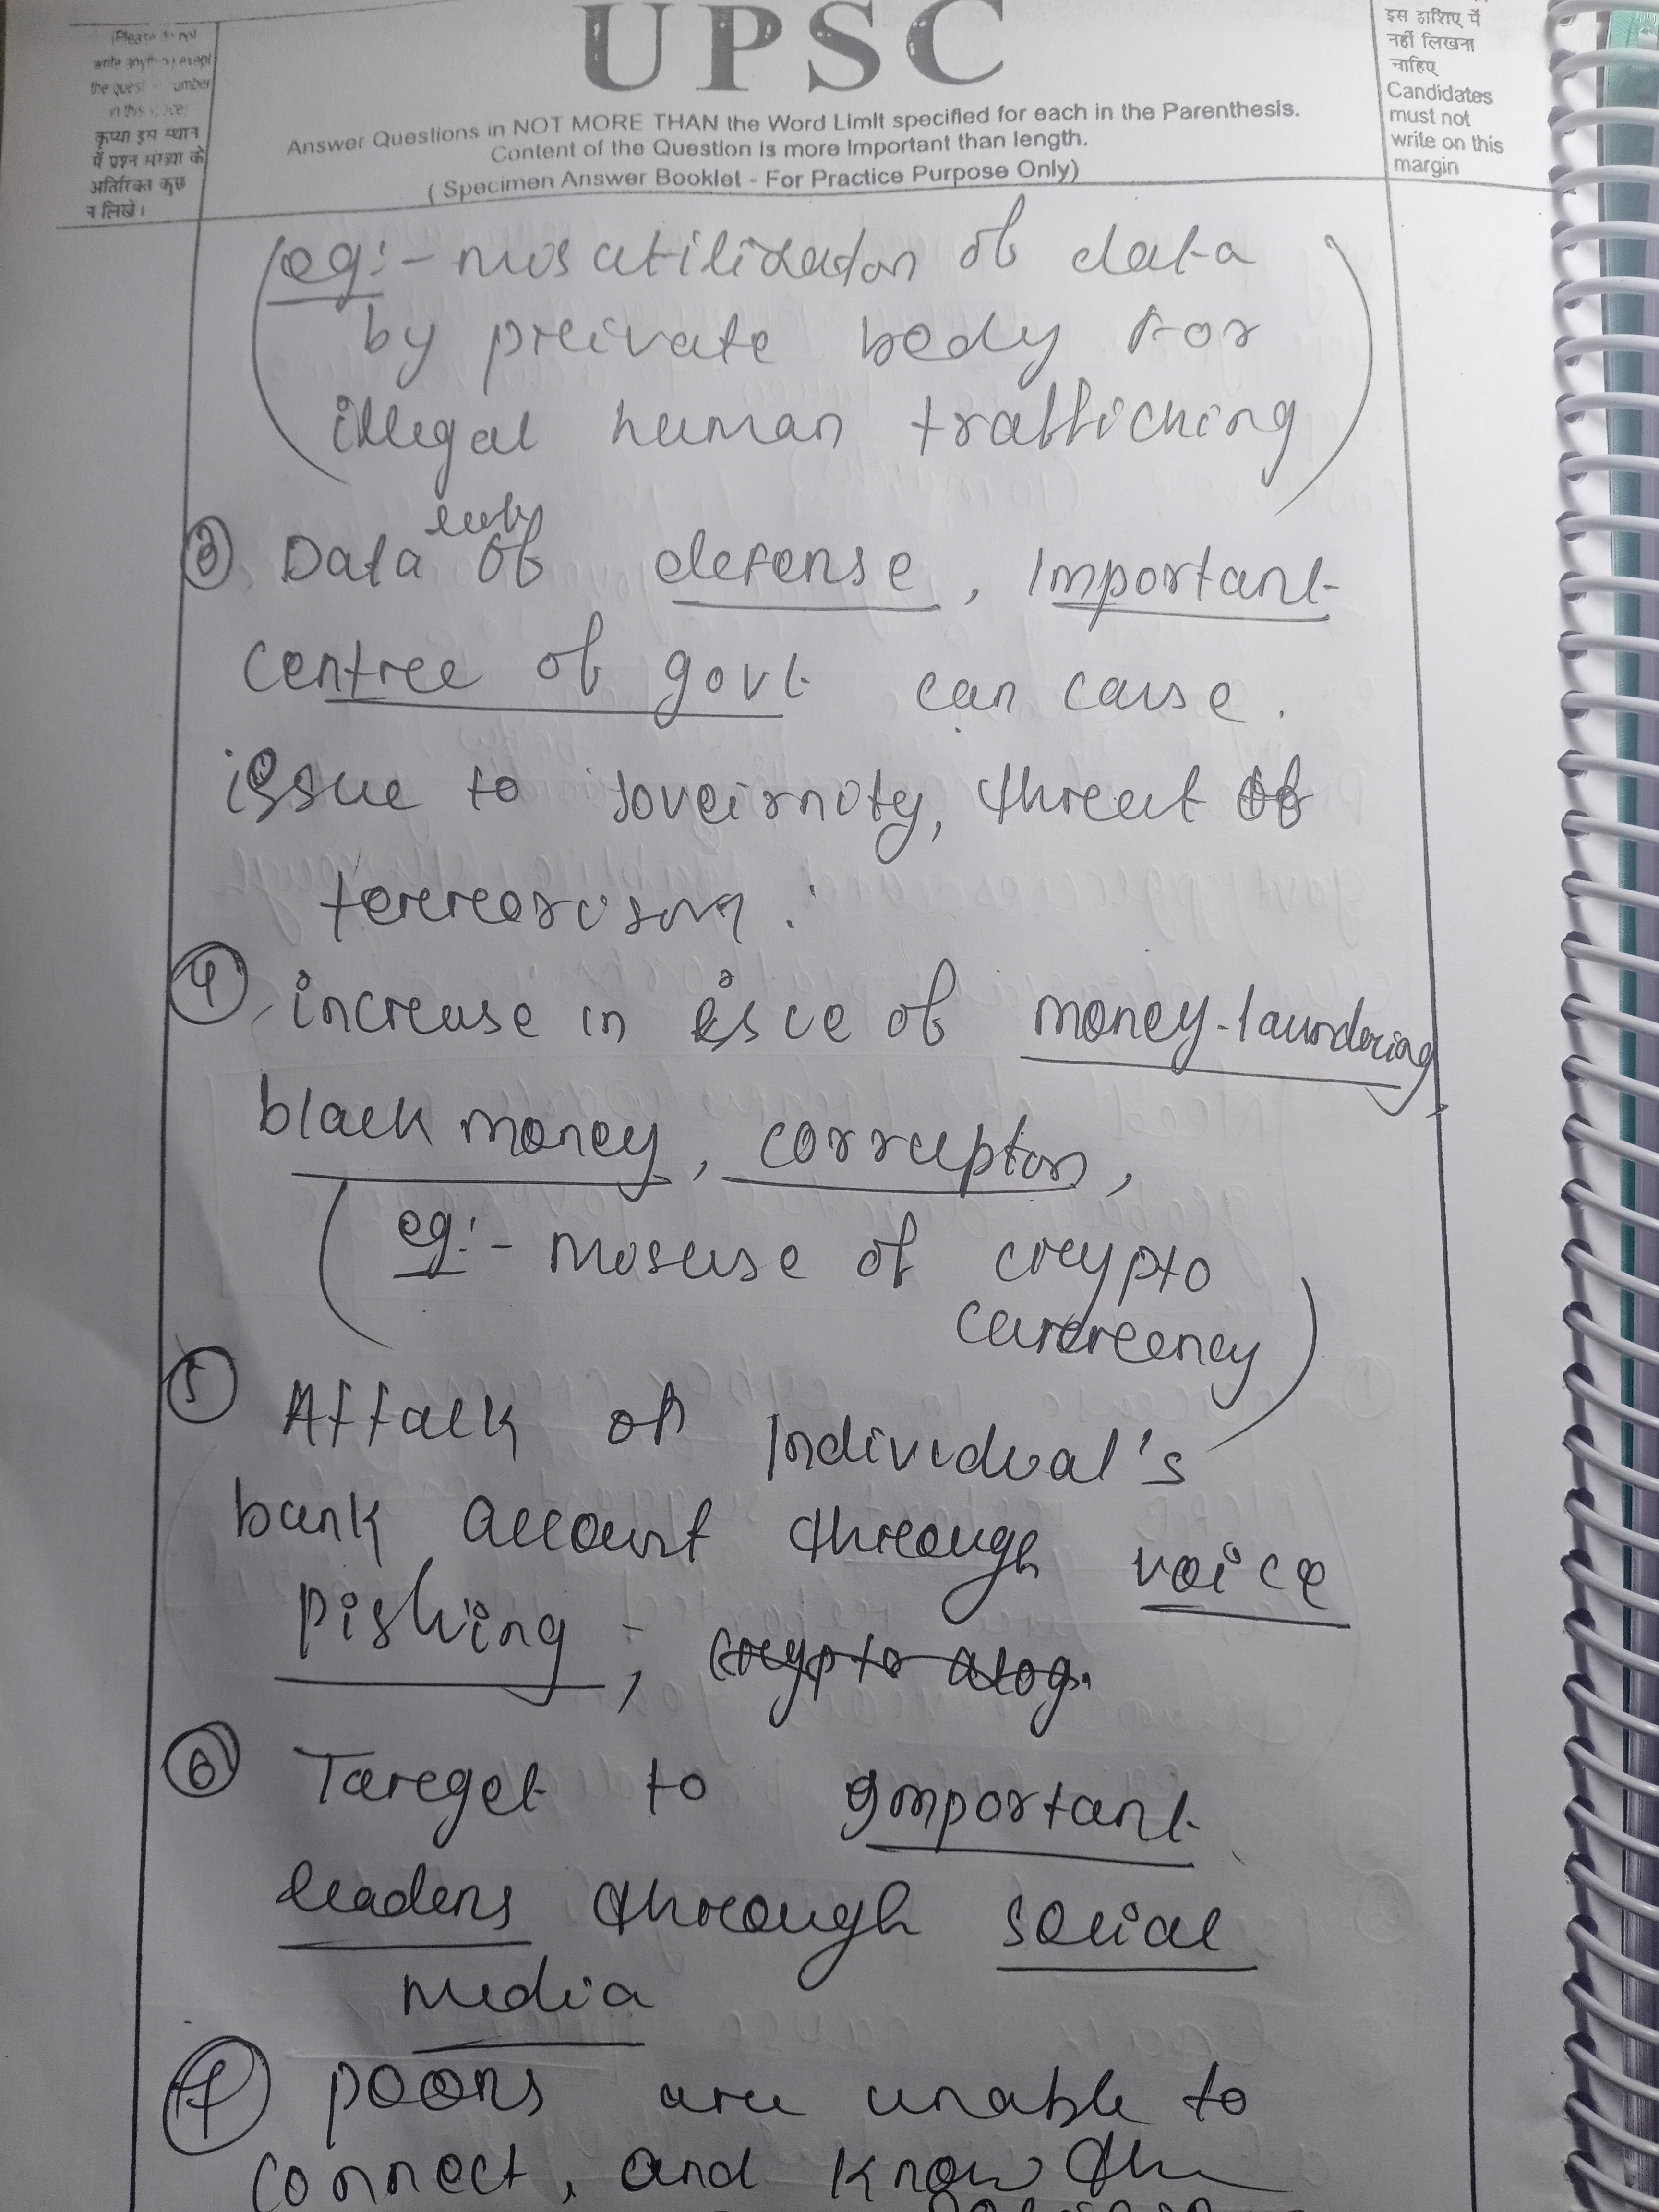 UPSC
(Please do not
write anything except
the question number
in this space)
कृप्या इस स्थान
में प्रश्न संख्या के
अतिरिक्त कुछ
न लिखें।
Answer Questions in NOT MORE THAN the Word Limit specified for each in the Parenthesis.
Content of the Question is more Important than length.
( Specimen Answer Booklet - For Practice Purpose Only)
इस हाशिए में
नहीं लिखना
चाहिए
Candidates
must not
write on this
margin
(eg:- mis utilization of data
by private body for
illegal human trafficking)
③ Data of defense, Important
centre of govt can cause
issue to soveirnity, threat of
terrorism.
④ increase in of money-laundering
black money, corruption,
(eg:- Misuse of crypto
currency)
⑤ Attack of Individual's
bank account through voice
pishing, crypto
⑥ Target to important
leaders through social
media
⑦ poors are unable to
connect, and know the